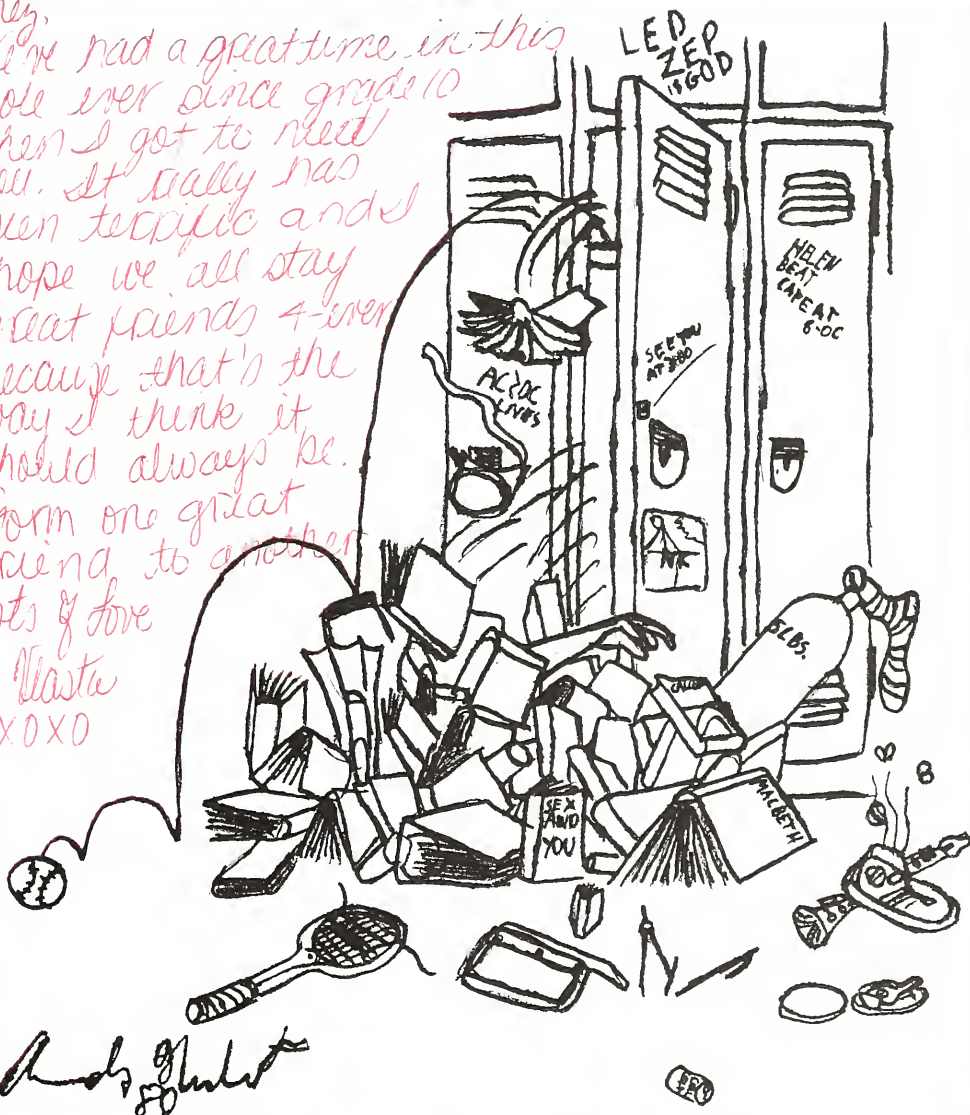 ey,
e've had a great time in this
ole ever since grade 10
hen I got to meet
ou. It really has
een terrific and I
hope we all stay
reat friends 4-ever
ecause that's the
ay I think it
hould always be.
orm one great
riend to another
ots of love
Vlasta
XOXO
LED
ZEP
IS GOD
HELEN
BEAT
6-0C
SEE YOU
AT
AC/DC
LIVES
5 LBS.
SEX
AND
YOU
MACBETH
80